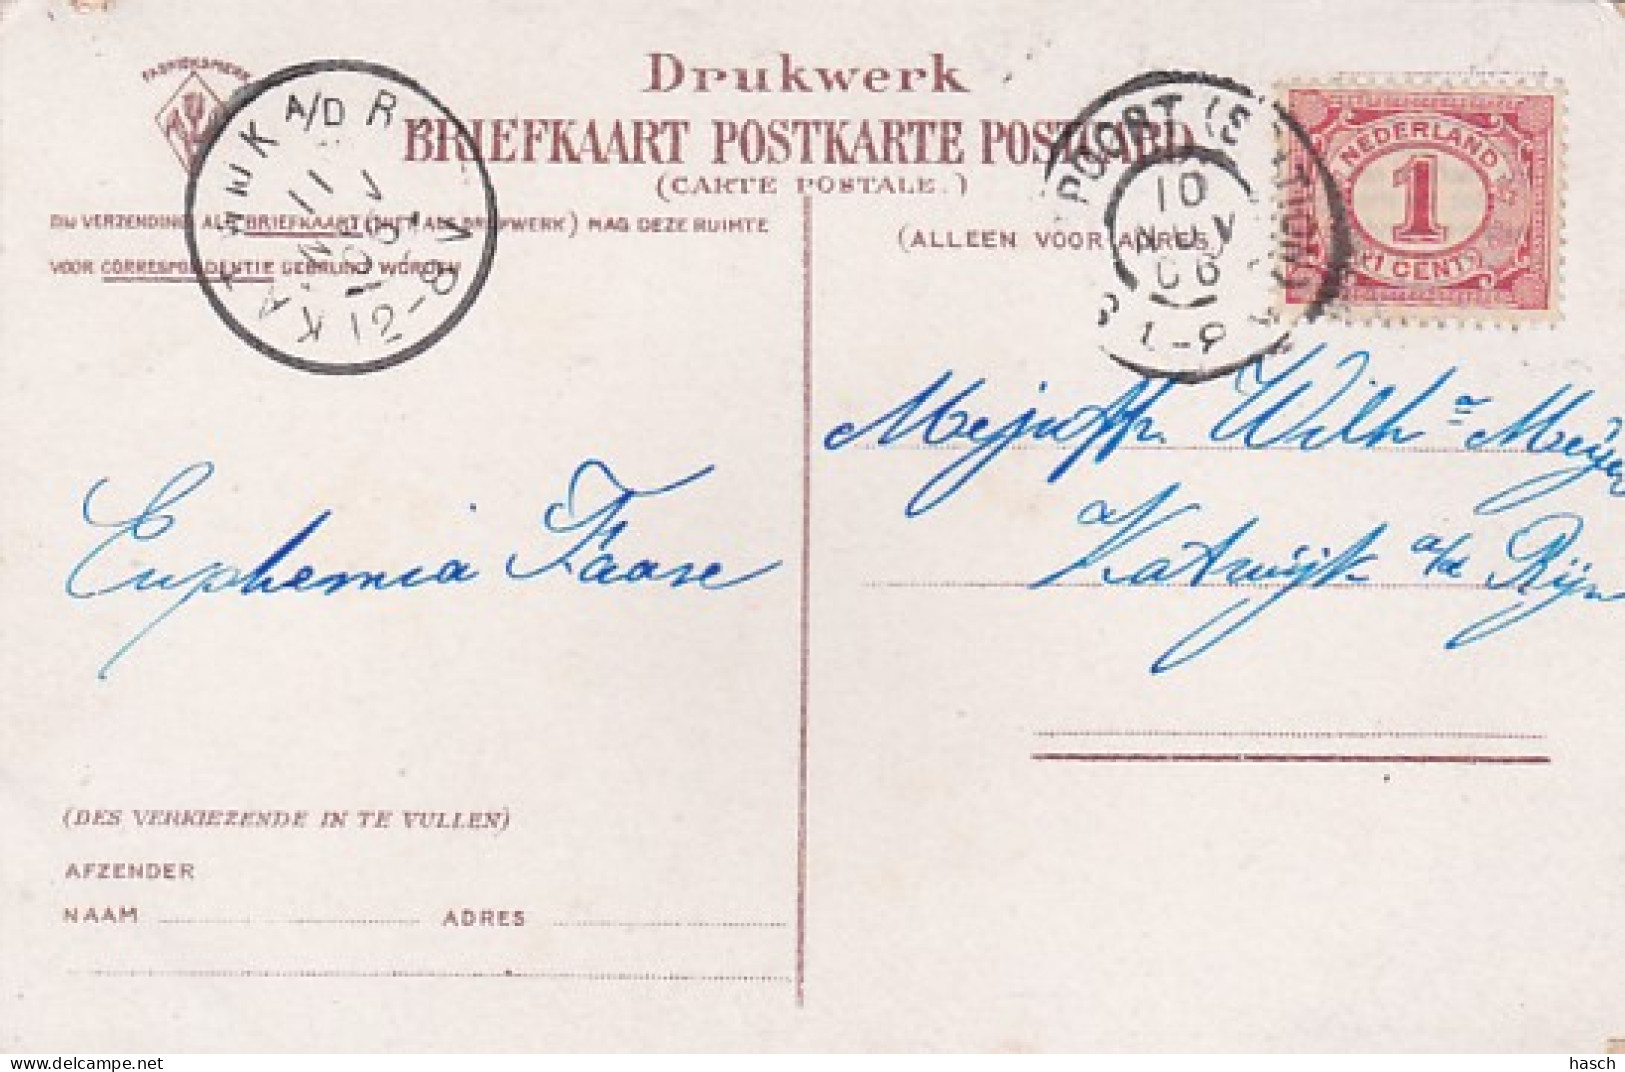 FABRIEKSMERK
Drukwerk
BRIEFKAART POSTKARTE POSTCARD
(CARTE POSTALE.)
BIJ VERZENDING ALS BRIEFKAART (NIET ALS DRUKWERK) MAG DEZE RUIMTE
VOOR CORRESPONDENTIE GEBRUIKT WORDEN
(ALLEEN VOOR ADRES)
KATWIJK A/D RIJN
11 NOV 06
POORT (STAT
10 NOV 06
NEDERLAND
1
(1 CENT)
Mejuffr. Wilhna Meijer
a
Katwijk a/d Rijn
Euphemia Faase
(DES VERKIEZENDE IN TE VULLEN)
AFZENDER
NAAM ADRES
hasch